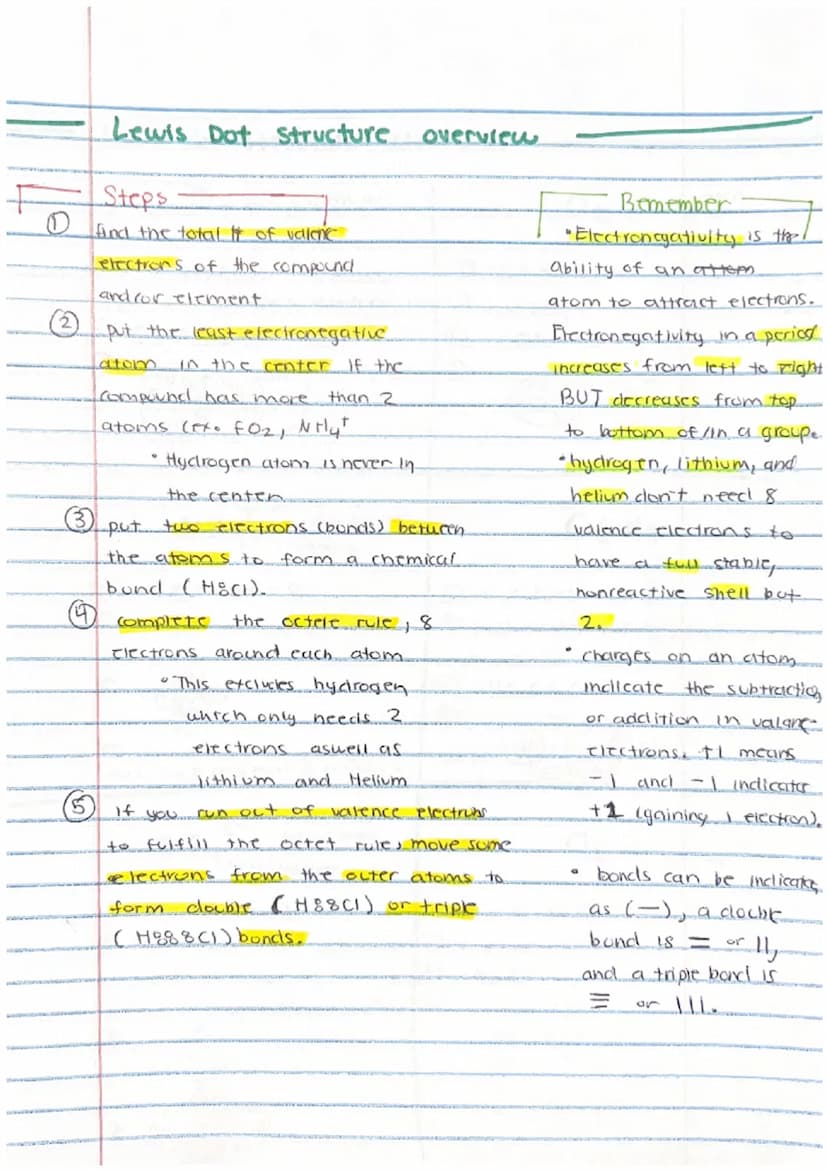 Lewis Dot Structure overview
Steps
① find the total # of valene
electrons of the compound
and/or element
② put the least electronegative
atom in the center if the
compound has more than 2
atoms (ex. FO2, NH4+
• Hydrogen atom is never in
the center
③ put two electrons (bonds) between
the atoms to form a chemical
bond (H:Cl).
④ complete the octete rule, 8
electrons around each atom
• This excludes hydrogen
which only needs 2
electrons aswell as
lithium and Helium
⑤ If you run out of valence electrons
to fulfill the octet rule, move some
electrons from the outer atoms to
form double (H::Cl) or triple
(H:::Cl) bonds.
Remember
• Electronegativity is the
ability of an attom
atom to attract electrons.
Electronegativity in a period
increases from left to right
BUT decreases from top
to bottom of/in a group.
• hydrogen, lithium, and
helium don't need 8
valence electrons to
have a full stable,
nonreactive shell but
2.
• charges on an atom
indicate the subtraction
or addition in valane
electrons. +1 means
-1 and -1 indicates
+1 (gaining 1 electron).
• bonds can be indicate
as (—), a double
bond is = or ||,
and a triple bond is
≡ or |||.